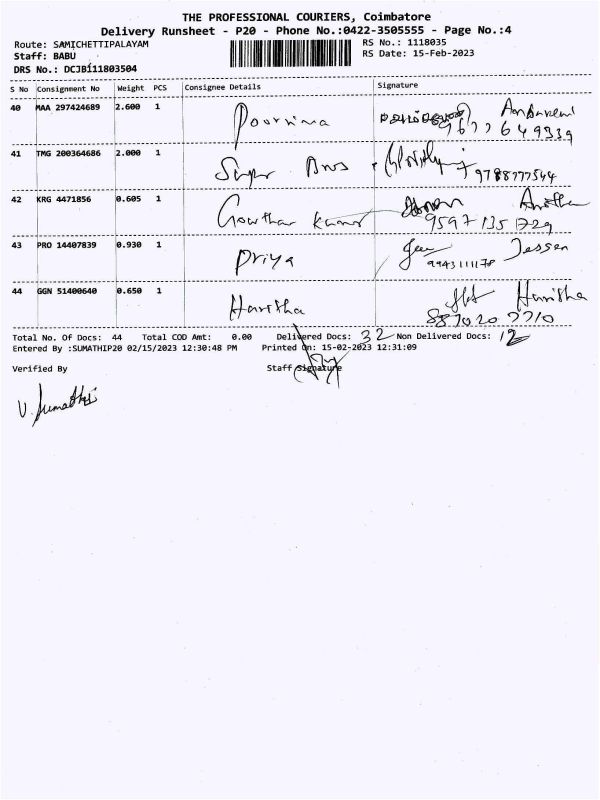 THE PROFESSIONAL COURIERS, Coimbatore
Delivery Runsheet - P20 - Phone No.:0422-3505555 - Page No.:4
Route: SAMICHETTIPALAYAM RS No.: 1118035
Staff: BABU RS Date: 15-Feb-2023
DRS No.: DCJB111803504
S No Consignment No Weight PCS Consignee Details Signature
40 MAA 297424689 2.600 1 Poornima
41 TMG 200364686 2.000 1 9788777544
42 KRG 4471856 0.605 1 Gowtham Kumar 9597135729
43 PRO 14407839 0.930 1 Priya Jessen
9943111178
44 GGN 51400640 0.650 1 Harisha Harisha
Total No. Of Docs: 44 Total COD Amt: 0.00 Delivered Docs: 32 Non Delivered Docs: 12
Entered By :SUMATHIP20 02/15/2023 12:30:48 PM Printed On: 15-02-2023 12:31:09
Verified By Staff Signature
V. Sumathi